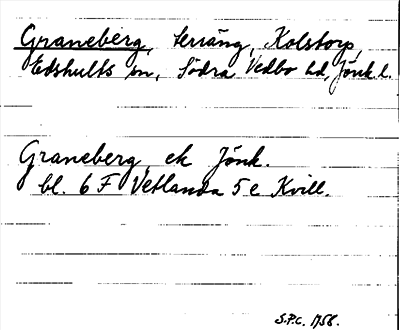 Graneberg, terräng, Kolstorp,
Edshults sn, Södra Vedbo hd, Jönk. l.
Graneberg, ek Jönk.
bl. 6 F Vetlanda 5 e Kvill.
S.P.C. 1958.